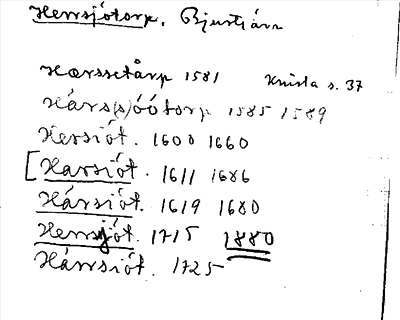 Herrsjötorp, Bjurtjärn
Hærssetårp 1581 Krüsla s. 37
Hárs(s)óótorp 1585 1589
Hersiöt. 1600 1660
[Harsiöt. 1611 1686
Hársiöt. 1619 1680
Herrsjöt. 1715 1880
Hárrsiöt. 1725